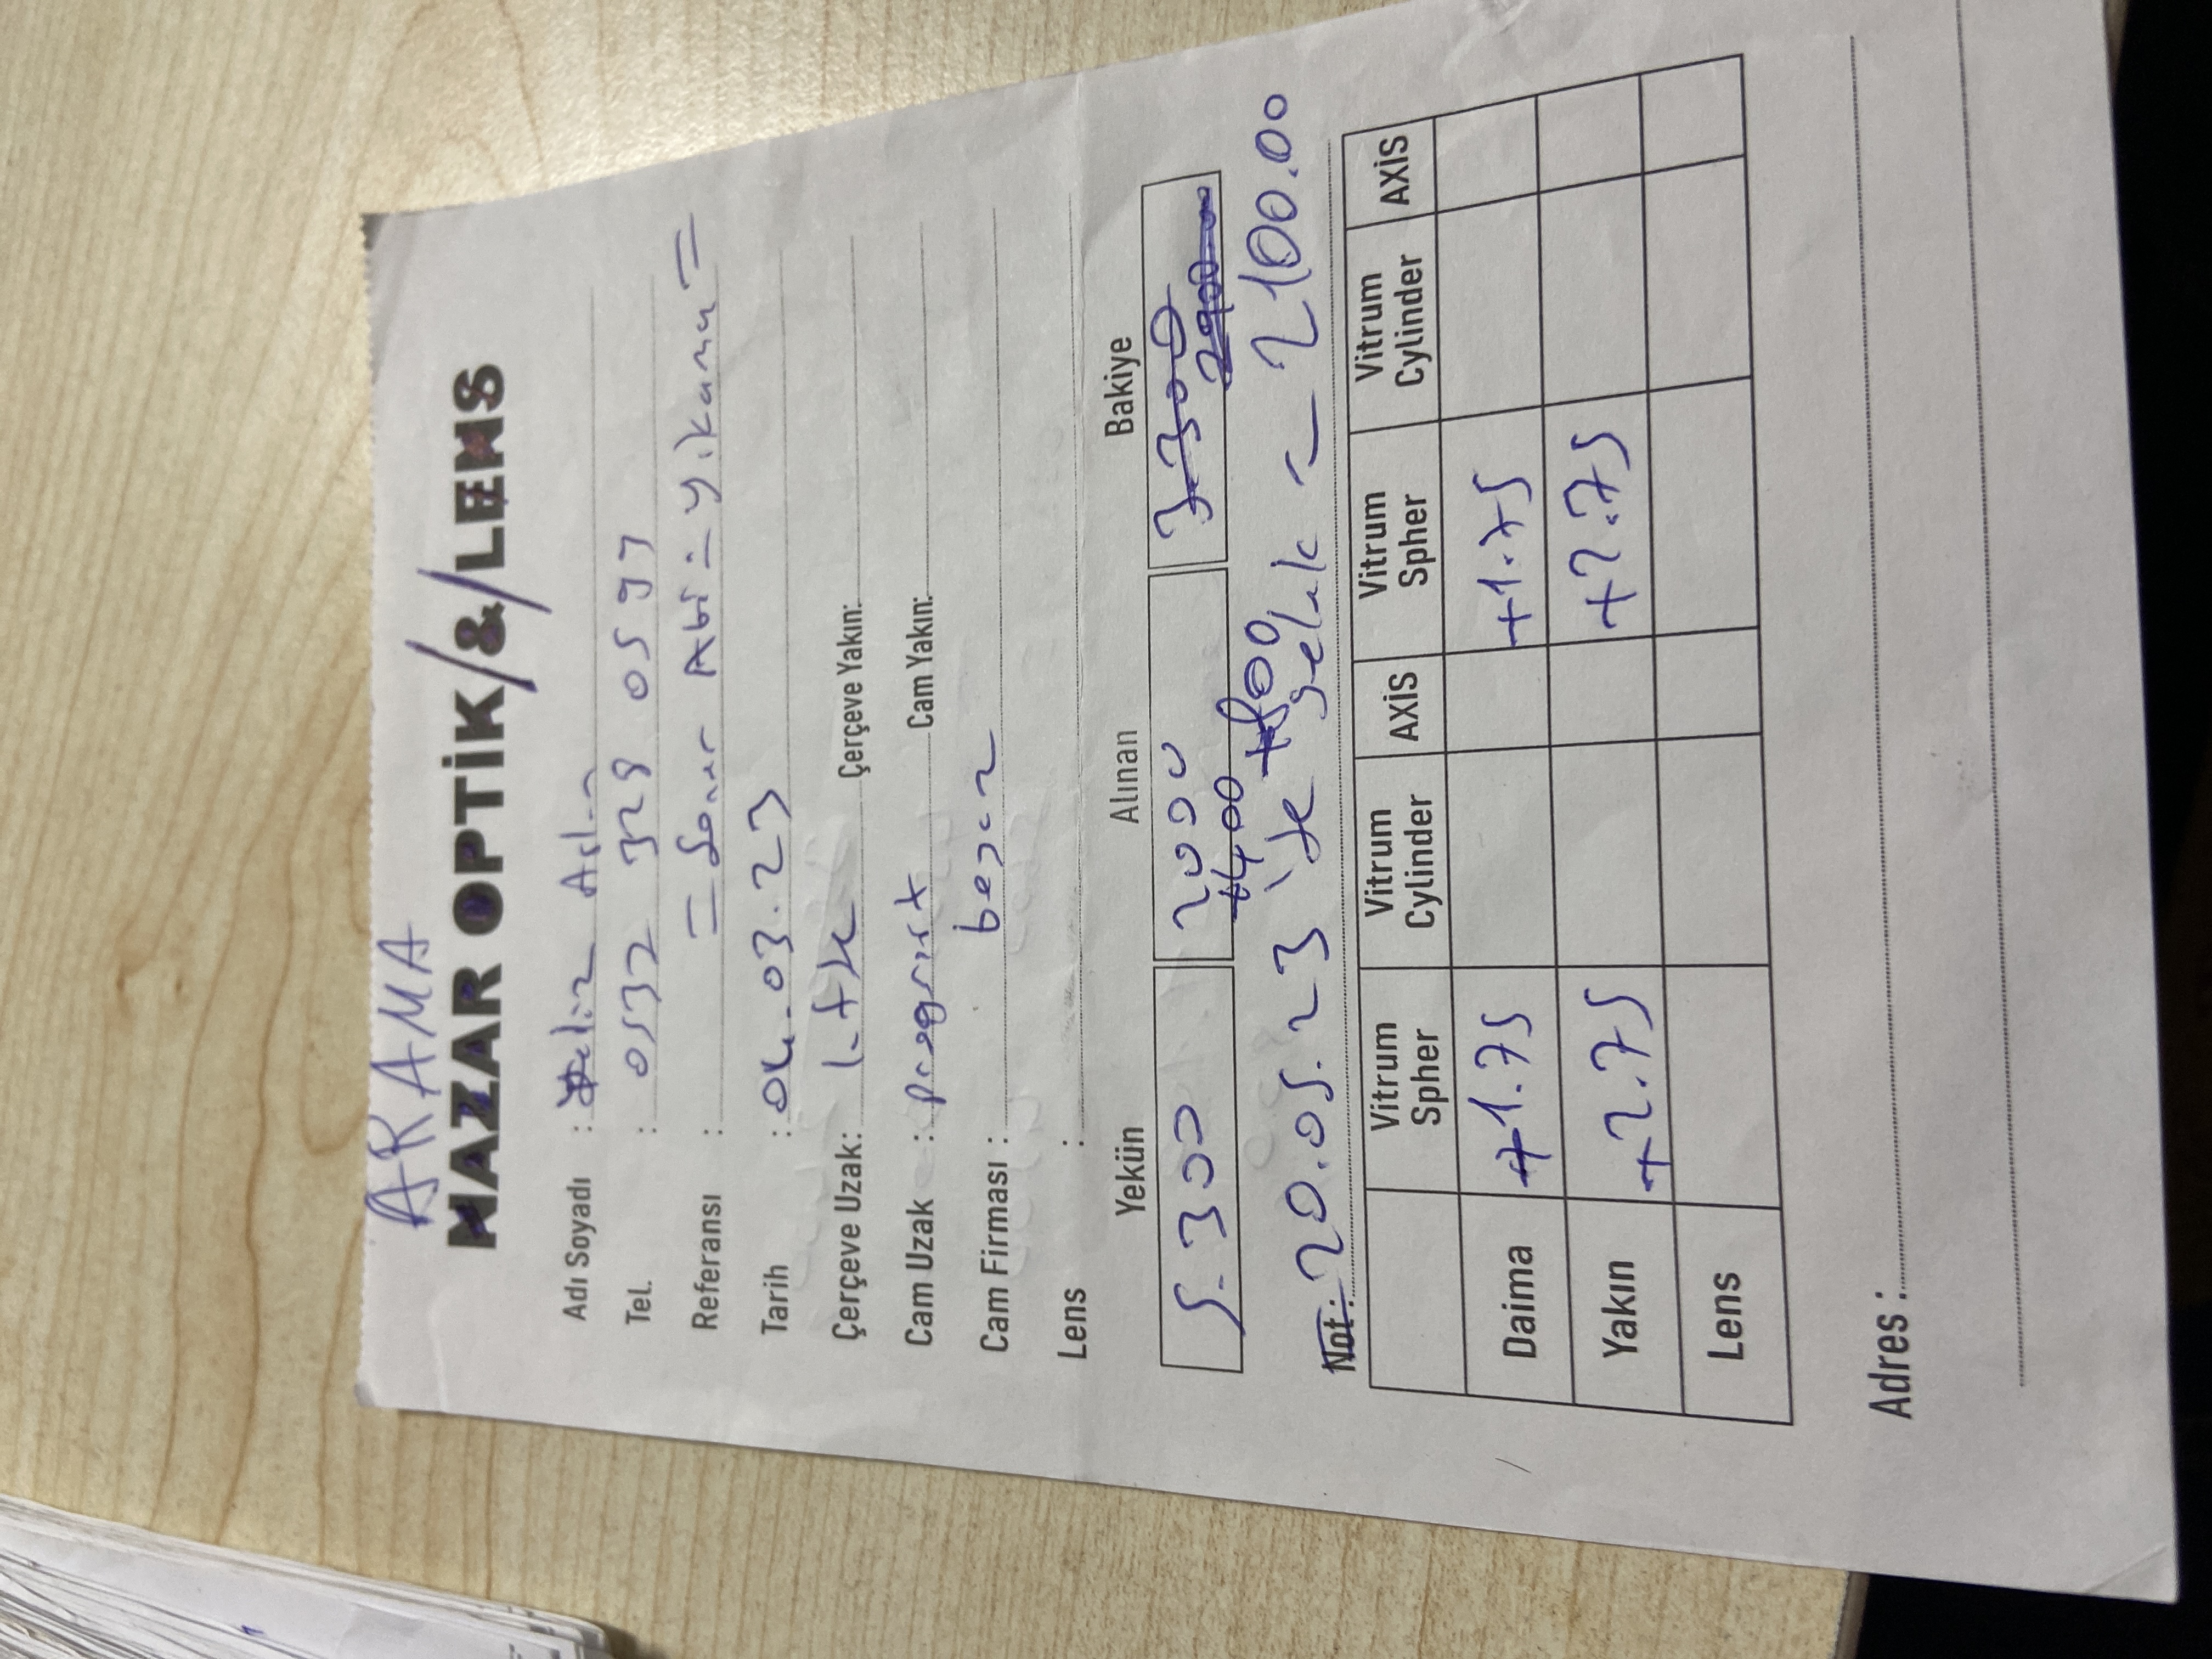 ARAMA
NAZAR OPTİK & LENS
Adı Soyadı : Yeliz Aslan
Tel. : 0532 328 0593
Referansı : = Soner Abi = Yıkama =
Tarih : 04.03.23
Çerçeve Uzak: Çerçeve Yakın:
Cam Uzak : Cam Yakın:
Cam Firması : beyaz
Lens :
Yekün Alınan Bakiye
5.300 2000 3.300
+400 2900.00
+800
Not: 20.05.23 'te = 2100.00
Vitrum Spher Vitrum Cylinder AXİS Vitrum Spher Vitrum Cylinder AXİS
Daima +1.75 +1.75
Yakın +2.75 +2.75
Lens
Adres :